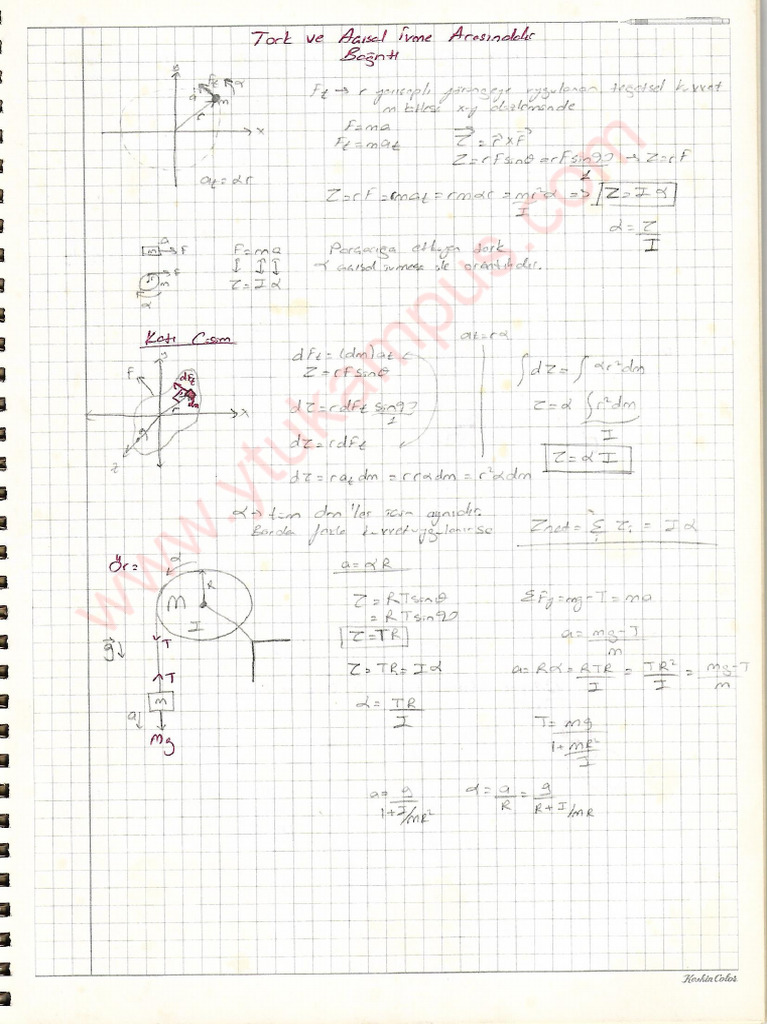 Tork ve Açısal İvme Arasındaki
Bağıntı
y
Ft a
m
r
x
at = αr
Ft → r yarıçaplı yörüngeye uygulanan teğetsel kuvvet
m kütlesi x-y düzleminde
F = ma
Ft = mat
τ = r x F
τ = rF sinθ = rF sin90 → τ = rF
1
τ = rF = rmat = rmαr = mr²α => τ = I α
I
α = τ/I
a
m F
F = ma
Parçacığa etkiyen tork
F
m
τ = Iα
α açısal ivmesi ile orantılıdır.
α
Katı Cisim
y
F
dFt
dm
r
x
z
dFt = (dm)at
τ = rF sinθ
dτ = r dFt sin90
1
dτ = r dFt
dτ = r at dm = r rα dm = r² α dm
at = rα
∫dτ = ∫ αr² dm
τ = α ∫ r² dm
I
τ = α I
α → tüm dm'ler için aynıdır.
Birden fazla kuvvet uygulanırsa
τnet = Σ τi = Iα
Ör =
α
R
M
I
g
T
T
m
a
mg
a = αR
τ = RT sinθ
= RT sin90
τ = TR
τ = TR = Iα
α = TR/I
ΣFy = mg - T = ma
a = mg-T/m
a = Rα = RTR/I = TR²/I = mg-T/m
T = mg/1+mR²/I
a = g/1+I/mR²
α = a/R = g/R+I/mR
www.ytukampus.com
KeskinColor